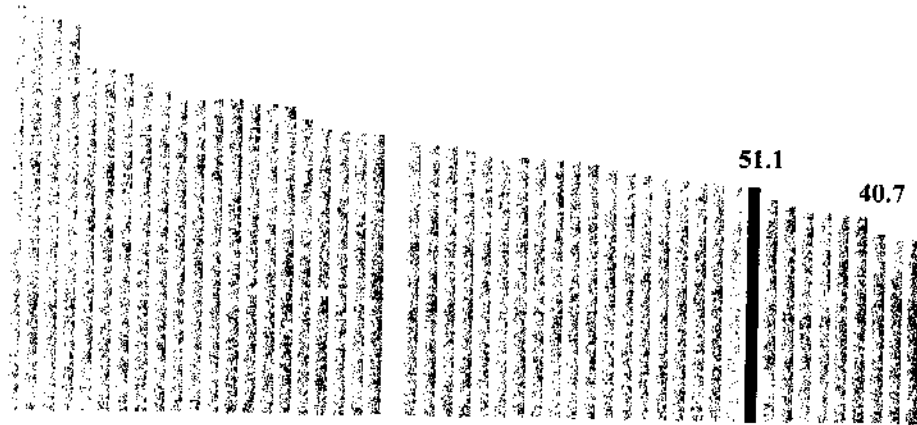 51.1
40.7